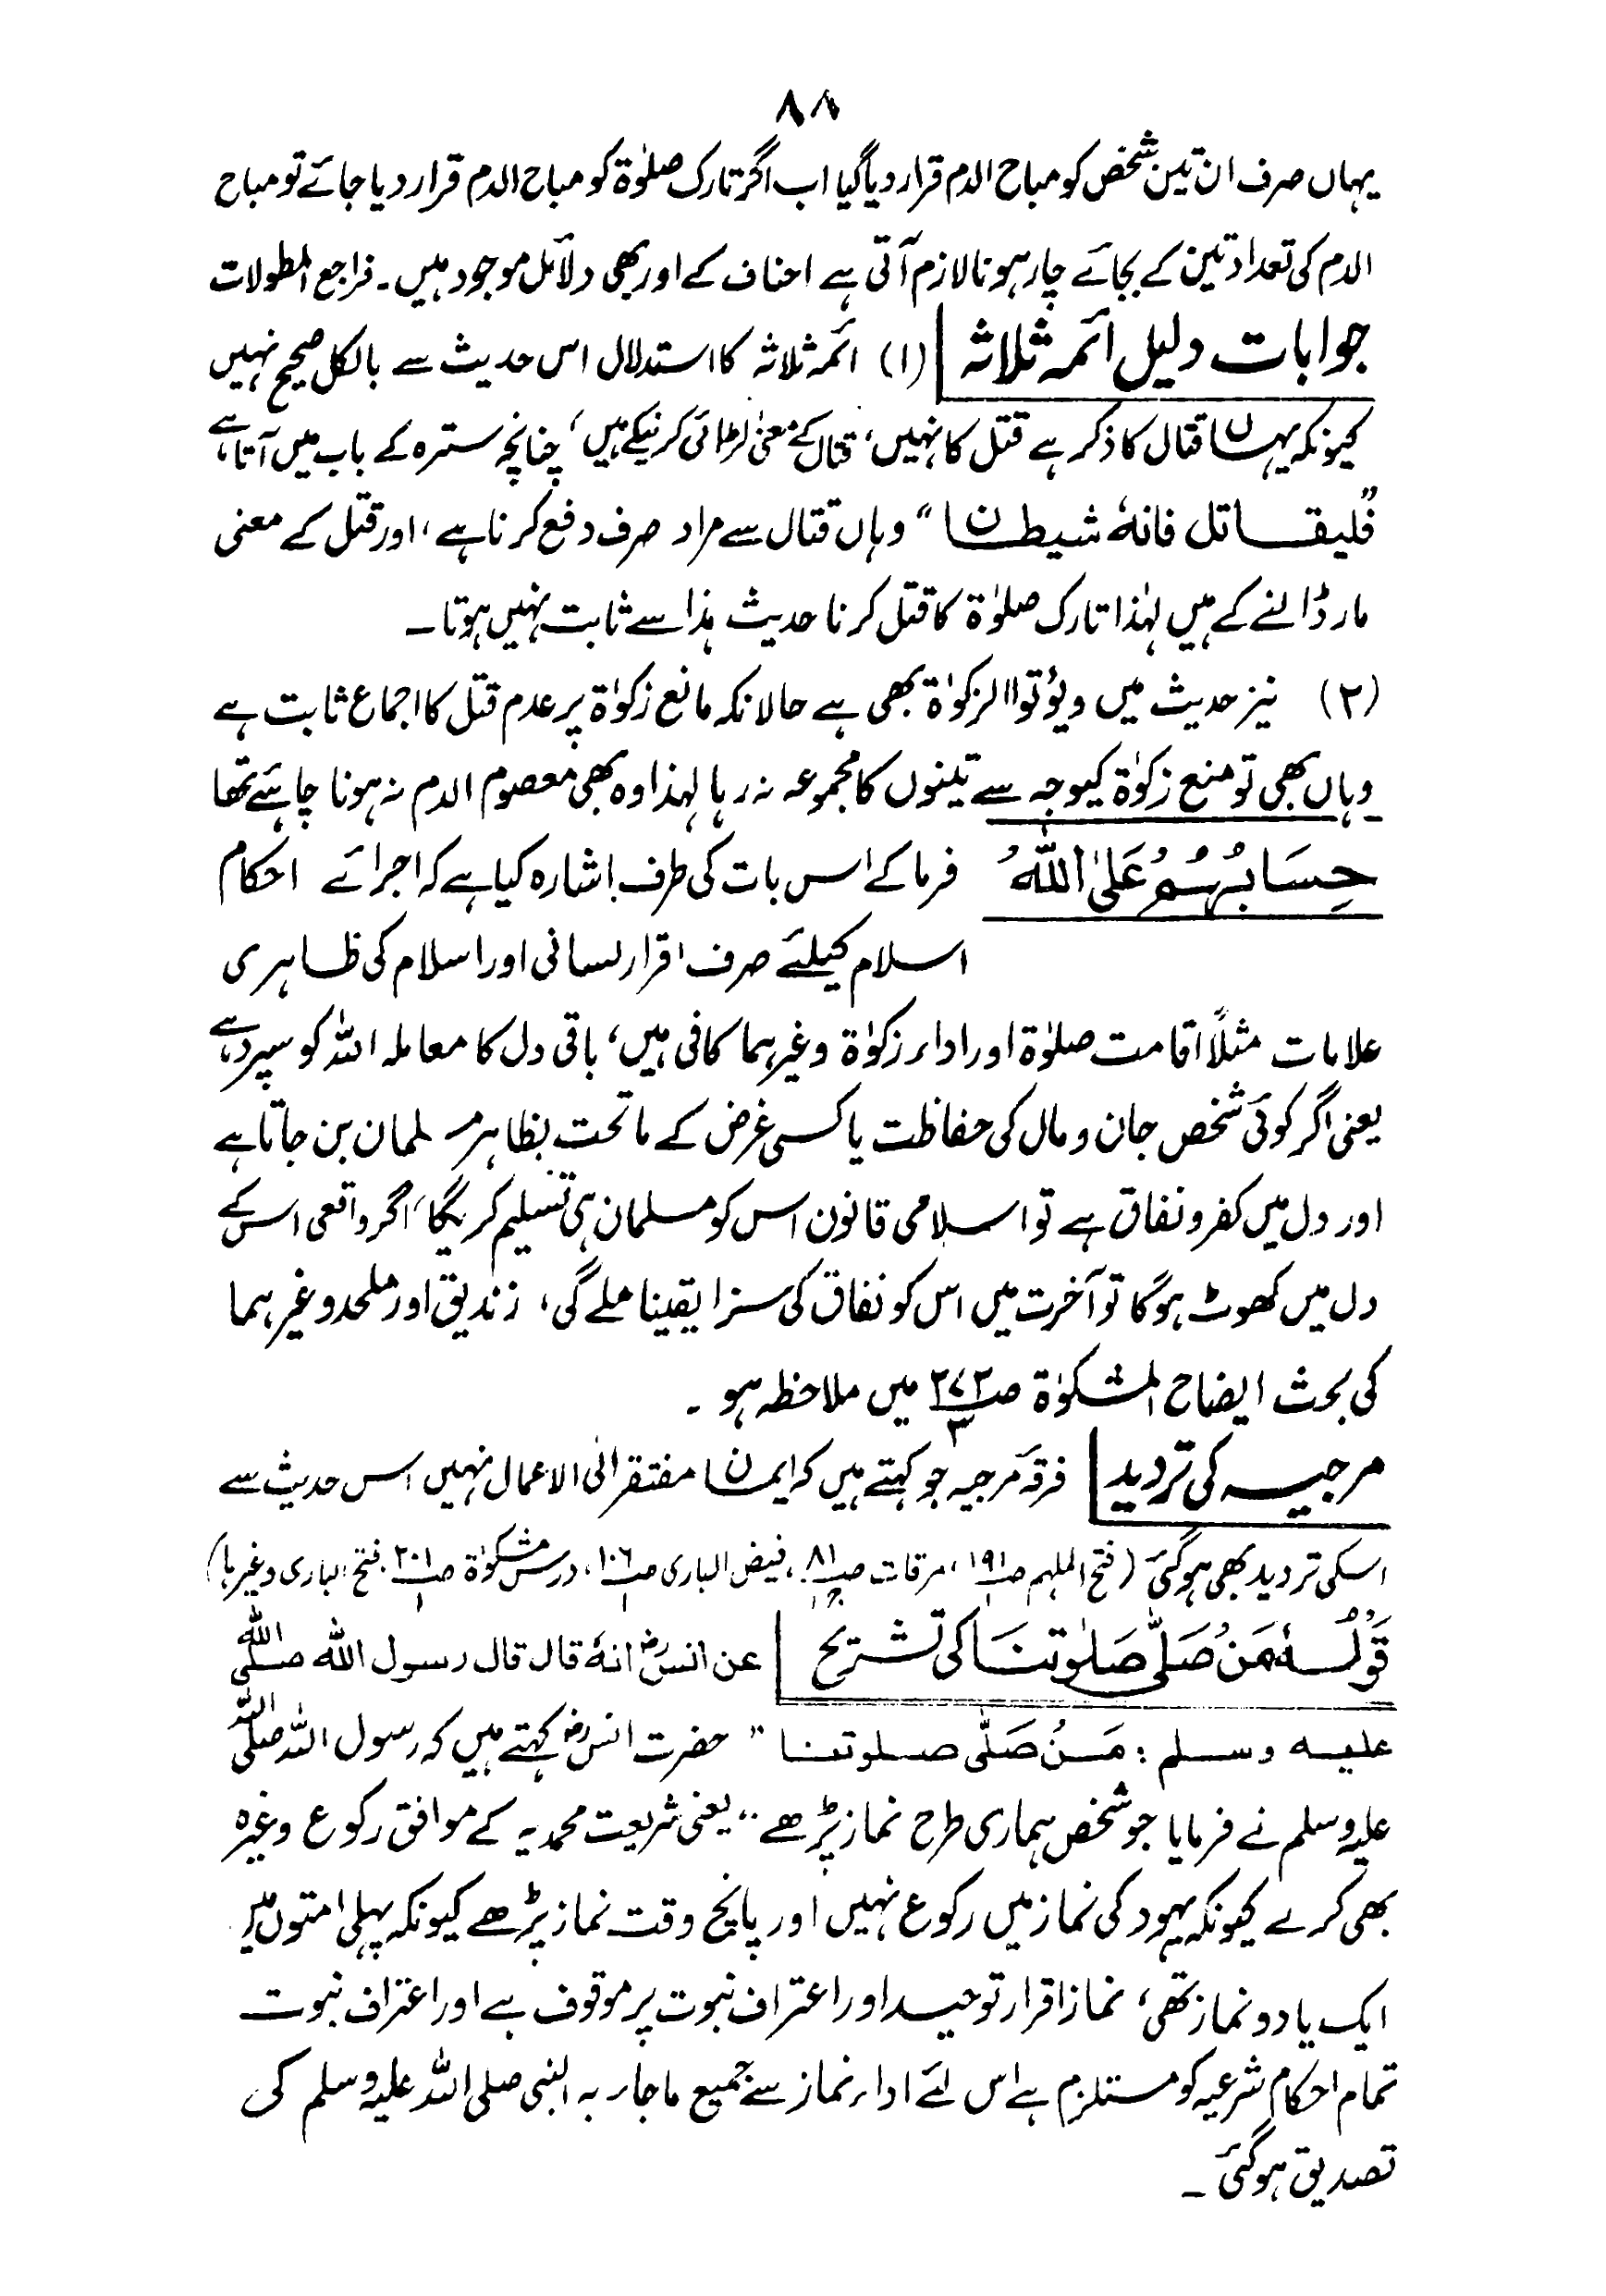 ۸۸
یہاں صرف ان تین شخص کو مباح الدم قرار دیا گیا اب اگر تارک صلوٰۃ کو مباح الدم قرار دیا جائے تو مباح
الدم کی تعداد تین کے بجائے چار ہونا لازم آتی ہے احناف کے اور بھی دلائل موجود ہیں۔ فراجع المطولات
جوابات دلیل ائمہ ثلاثہ (۱) ائمہ ثلاثہ کا استدلال اس حدیث سے بالکل صحیح نہیں
کیونکہ یہاں قتال کا ذکر ہے قتل کا نہیں، قتال کے معنیٰ لڑائی کرنیکے ہیں، چنانچہ سترہ کے باب میں آتا ہے
”فلیقاتل فانہٗ شیطان“ وہاں قتال سے مراد صرف دفع کرنا ہے، اور قتل کے معنی
مار ڈالنے کے ہیں لہٰذا تارک صلوٰۃ کا قتل کرنا حدیث ہذا سے ثابت نہیں ہوتا۔
(۲) نیز حدیث میں ویؤتوا الزکوٰۃ بھی ہے حالانکہ مانع زکوٰۃ پر عدم قتل کا اجماع ثابت ہے
وہاں بھی تو منع زکوٰۃ کیوجہ سے تینوں کا مجموعہ نہ رہا لہذا وہ بھی معصوم الدم نہ ہونا چاہئے تھا
حِسَابُہُمْ عَلَی اللّٰہُ فرما کے اس بات کی طرف اشارہ کیا ہے کہ اجرائے احکام
اسلام کیلئے صرف اقرار لسانی اور اسلام کی ظاہری
علامات مثلاً اقامت صلوٰۃ اور اداء زکوٰۃ وغیرہما کافی ہیں، باقی دل کا معاملہ اللہ کو سپرد ہے
یعنی اگر کوئی شخص جان و مال کی حفاظت یا کسی غرض کے ماتحت بظاہر مسلمان بن جاتا ہے
اور دل میں کفر و نفاق ہے تو اسلامی قانون اس کو مسلمان ہی تسلیم کریگا، اگر واقعی اس کے
دل میں کھوٹ ہوگا تو آخرت میں اس کو نفاق کی سزا یقینا ملے گی، زندیق اور ملحد وغیرہما
کی بحث ایضاح المشکوٰۃ صـ ۳۷۳ / ۳ میں ملاحظہ ہو۔
مرجیہ کی تردید فرقۂ مرجیہ جو کہتے ہیں کہ ایمان مفتقر الی الاعمال نہیں اس حدیث سے
اسکی تردید بھی ہوگئی (فتح الملہم صـ ۱۹۱ / ۱، مرقات صـ ۸۱، فیض الباری صـ ۱۰۶ / ۱، درس مشکوٰۃ صـ ۲۰۱ / ۱ فتح الباری وغیرہا)
قَوْلُہٗ مَنْ صَلّٰی صَلٰوتنَا کی تشریح عن انس رضؓ انہٗ قال قال رسول اللہ صلی اللہ
علیہ وسلم: مَنْ صَلّٰی صلوتنا“ حضرت انس رضؓ کہتے ہیں کہ رسول اللہ صلی اللہ
علیہ وسلم نے فرمایا جو شخص ہماری طرح نماز پڑھے“ یعنی شریعت محمدیہ کے موافق رکوع وغیرہ
بھی کرے کیونکہ یہود کی نماز میں رکوع نہیں اور پانچ وقت نماز پڑھے کیونکہ پہلی امتوں میں
ایک یا دو نماز تھی، نماز اقرار توحید اور اعتراف نبوت پر موقوف ہے اور اعتراف نبوت
تمام احکام شرعیہ کو مستلزم ہے اس لئے اداء نماز سے جمیع ماجاء بہ النبی صلی اللہ علیہ وسلم کی
تصدیق ہوگئی۔